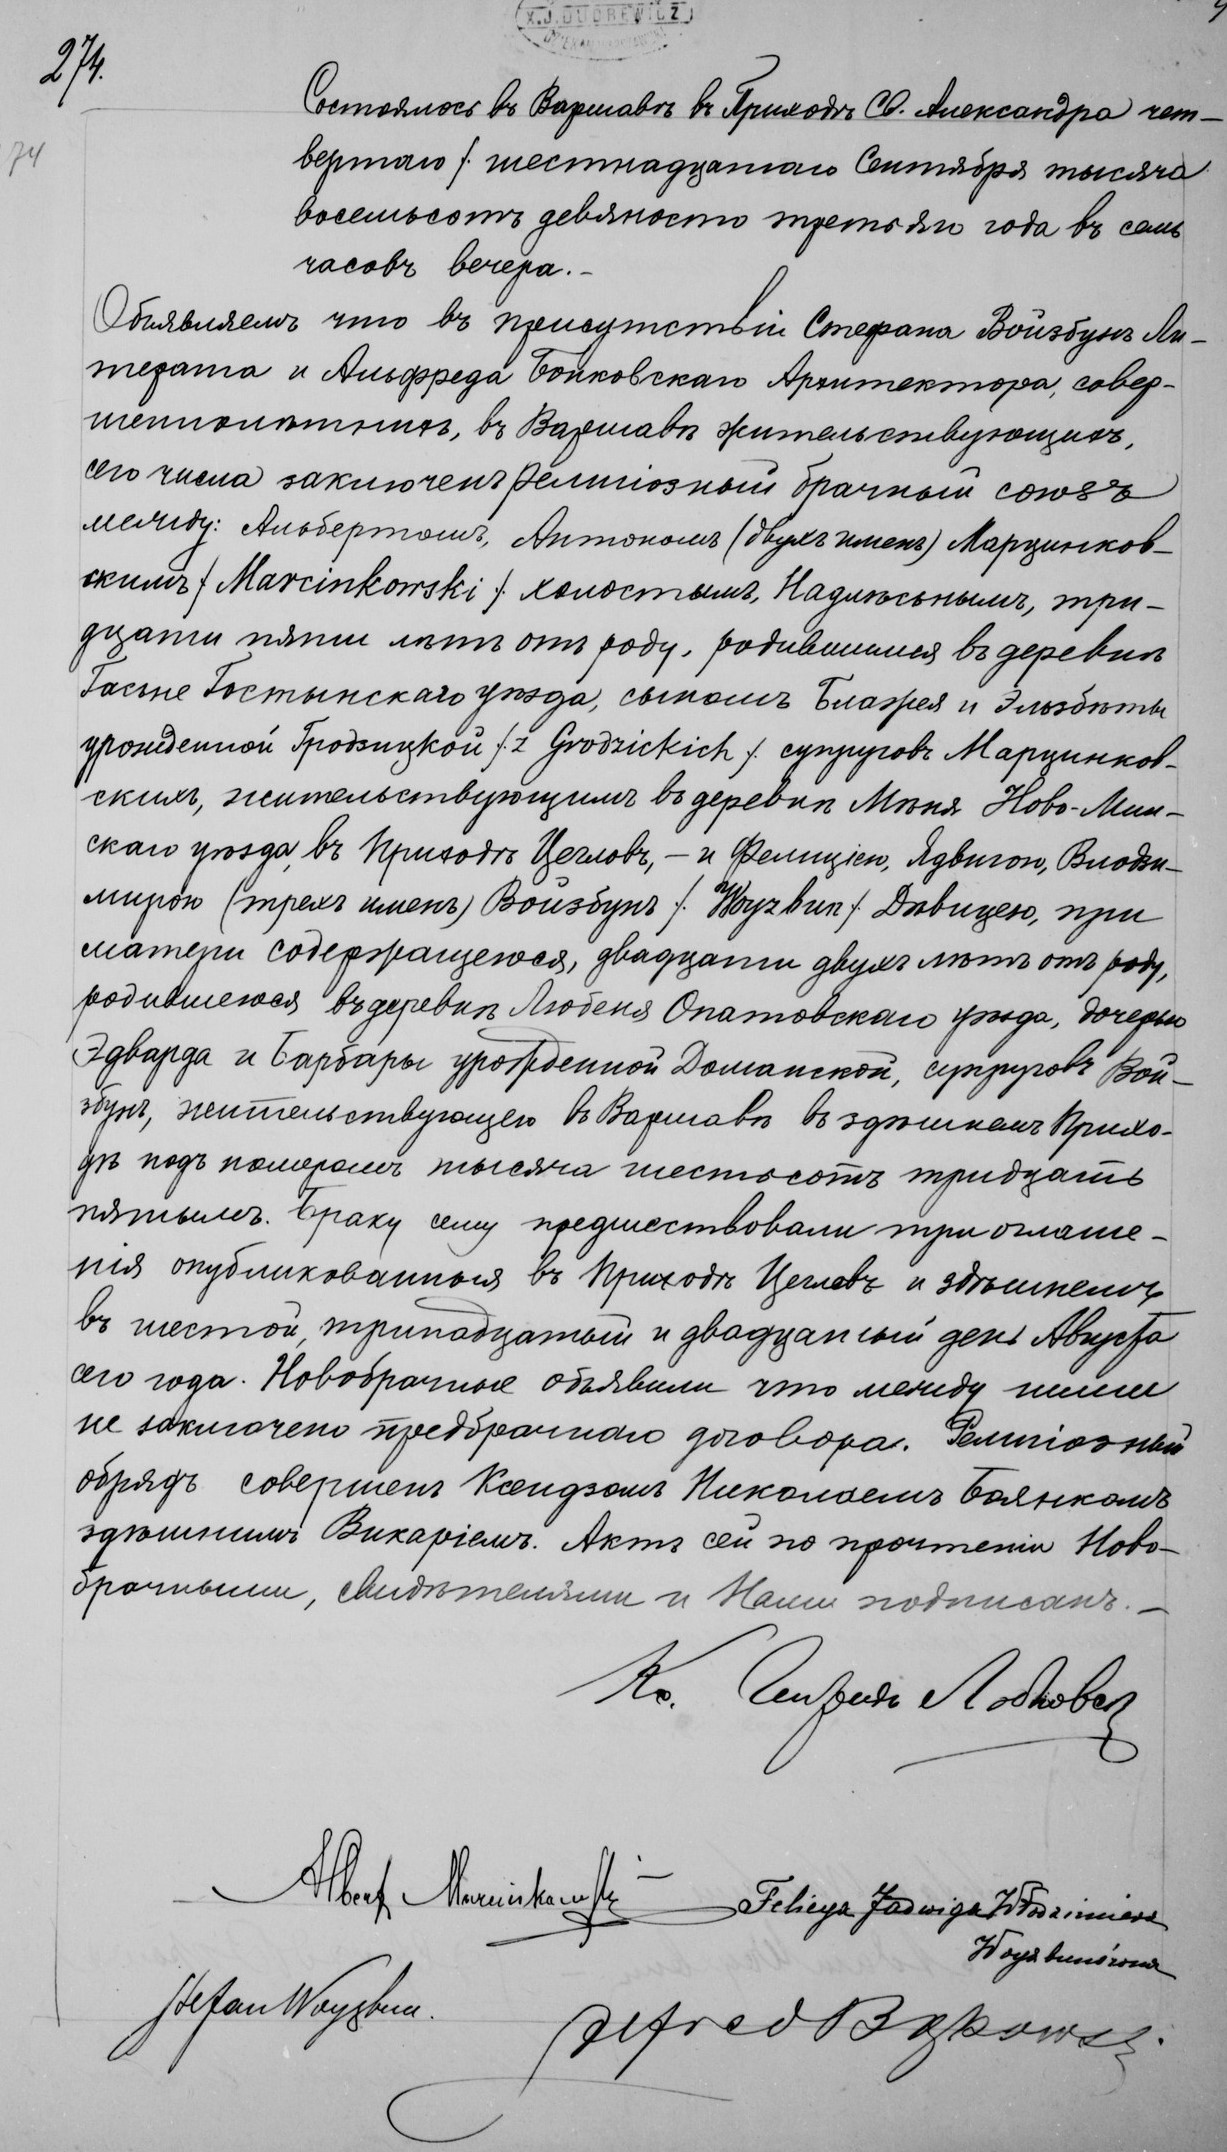 X.J.DUDREWICZ
274.
74
Состоялось въ Варшавѣ въ Приходѣ Св. Александра чет-
вертаго /. шестнадцатаго Сентября тысяча
восемьсотъ девяносто третьяго года въ семь
часовъ вечера.-
Объявляемъ что въ присутствіи Стефана Войзбунъ Ли-
терата и Альфреда Бонковскаго Архитектора, совер-
шеннолѣтнихъ, въ Варшавѣ жительствующихъ,
сего числа заключенъ религіозный брачный союзъ
между: Альбертомъ, Антономъ (двухъ именъ) Марцинков-
скимъ /. Marcinkowski /. холостымъ, Надлѣснымъ, три-
дцати пяти лѣтъ отъ роду, родившимся въ деревнѣ
Гостынскаго уѣзда, сыномъ Блажея и Эльзбѣты
урожденной Гродзицкой /. z Grodzickich /. супруговъ Марцинков-
скихъ, жительствующимъ въ деревнѣ Мѣня Ново-Мин-
скаго уѣзда, въ Приходѣ Цегловъ, - и Фелиціею, Ядвигою, Влодзи-
мирою (трехъ именъ) Войзбунъ /. Woyzbun /. Дѣвицею, при
матери содержащеюся, двадцати двухъ лѣтъ отъ роду,
родившеюся въ деревнѣ Любеня Опатовскаго уѣзда, дочерью
Эдварда и Барбары урожденной Доманской, супруговъ Вой-
збунъ, жительствующею въ Варшавѣ въ здѣшнемъ Прихо-
дѣ подъ номеромъ тысяча шестьсотъ тридцать
пятымъ. Браку сему предшествовали три оглаше-
нія опубликованныя въ Приходѣ Цегловъ и здѣшнемъ
въ шестой, тринадцатый и двадцатый день Августа
сего года. Новобрачные объявили что между ними
не заключено предбрачнаго договора. Религіозный
обрядъ совершенъ Ксендзомъ Николаемъ Боянкомъ
здѣшнимъ Викаріемъ. Актъ сей по прочтеніи Ново-
брачными, свидѣтелями и Нами подписанъ.-
Кс.
Albert Marcinkowski
Felicya Jadwiga Włodzimiera
Woyzbunówna
Stefan Woyzbun.
Alfred Bąkowski